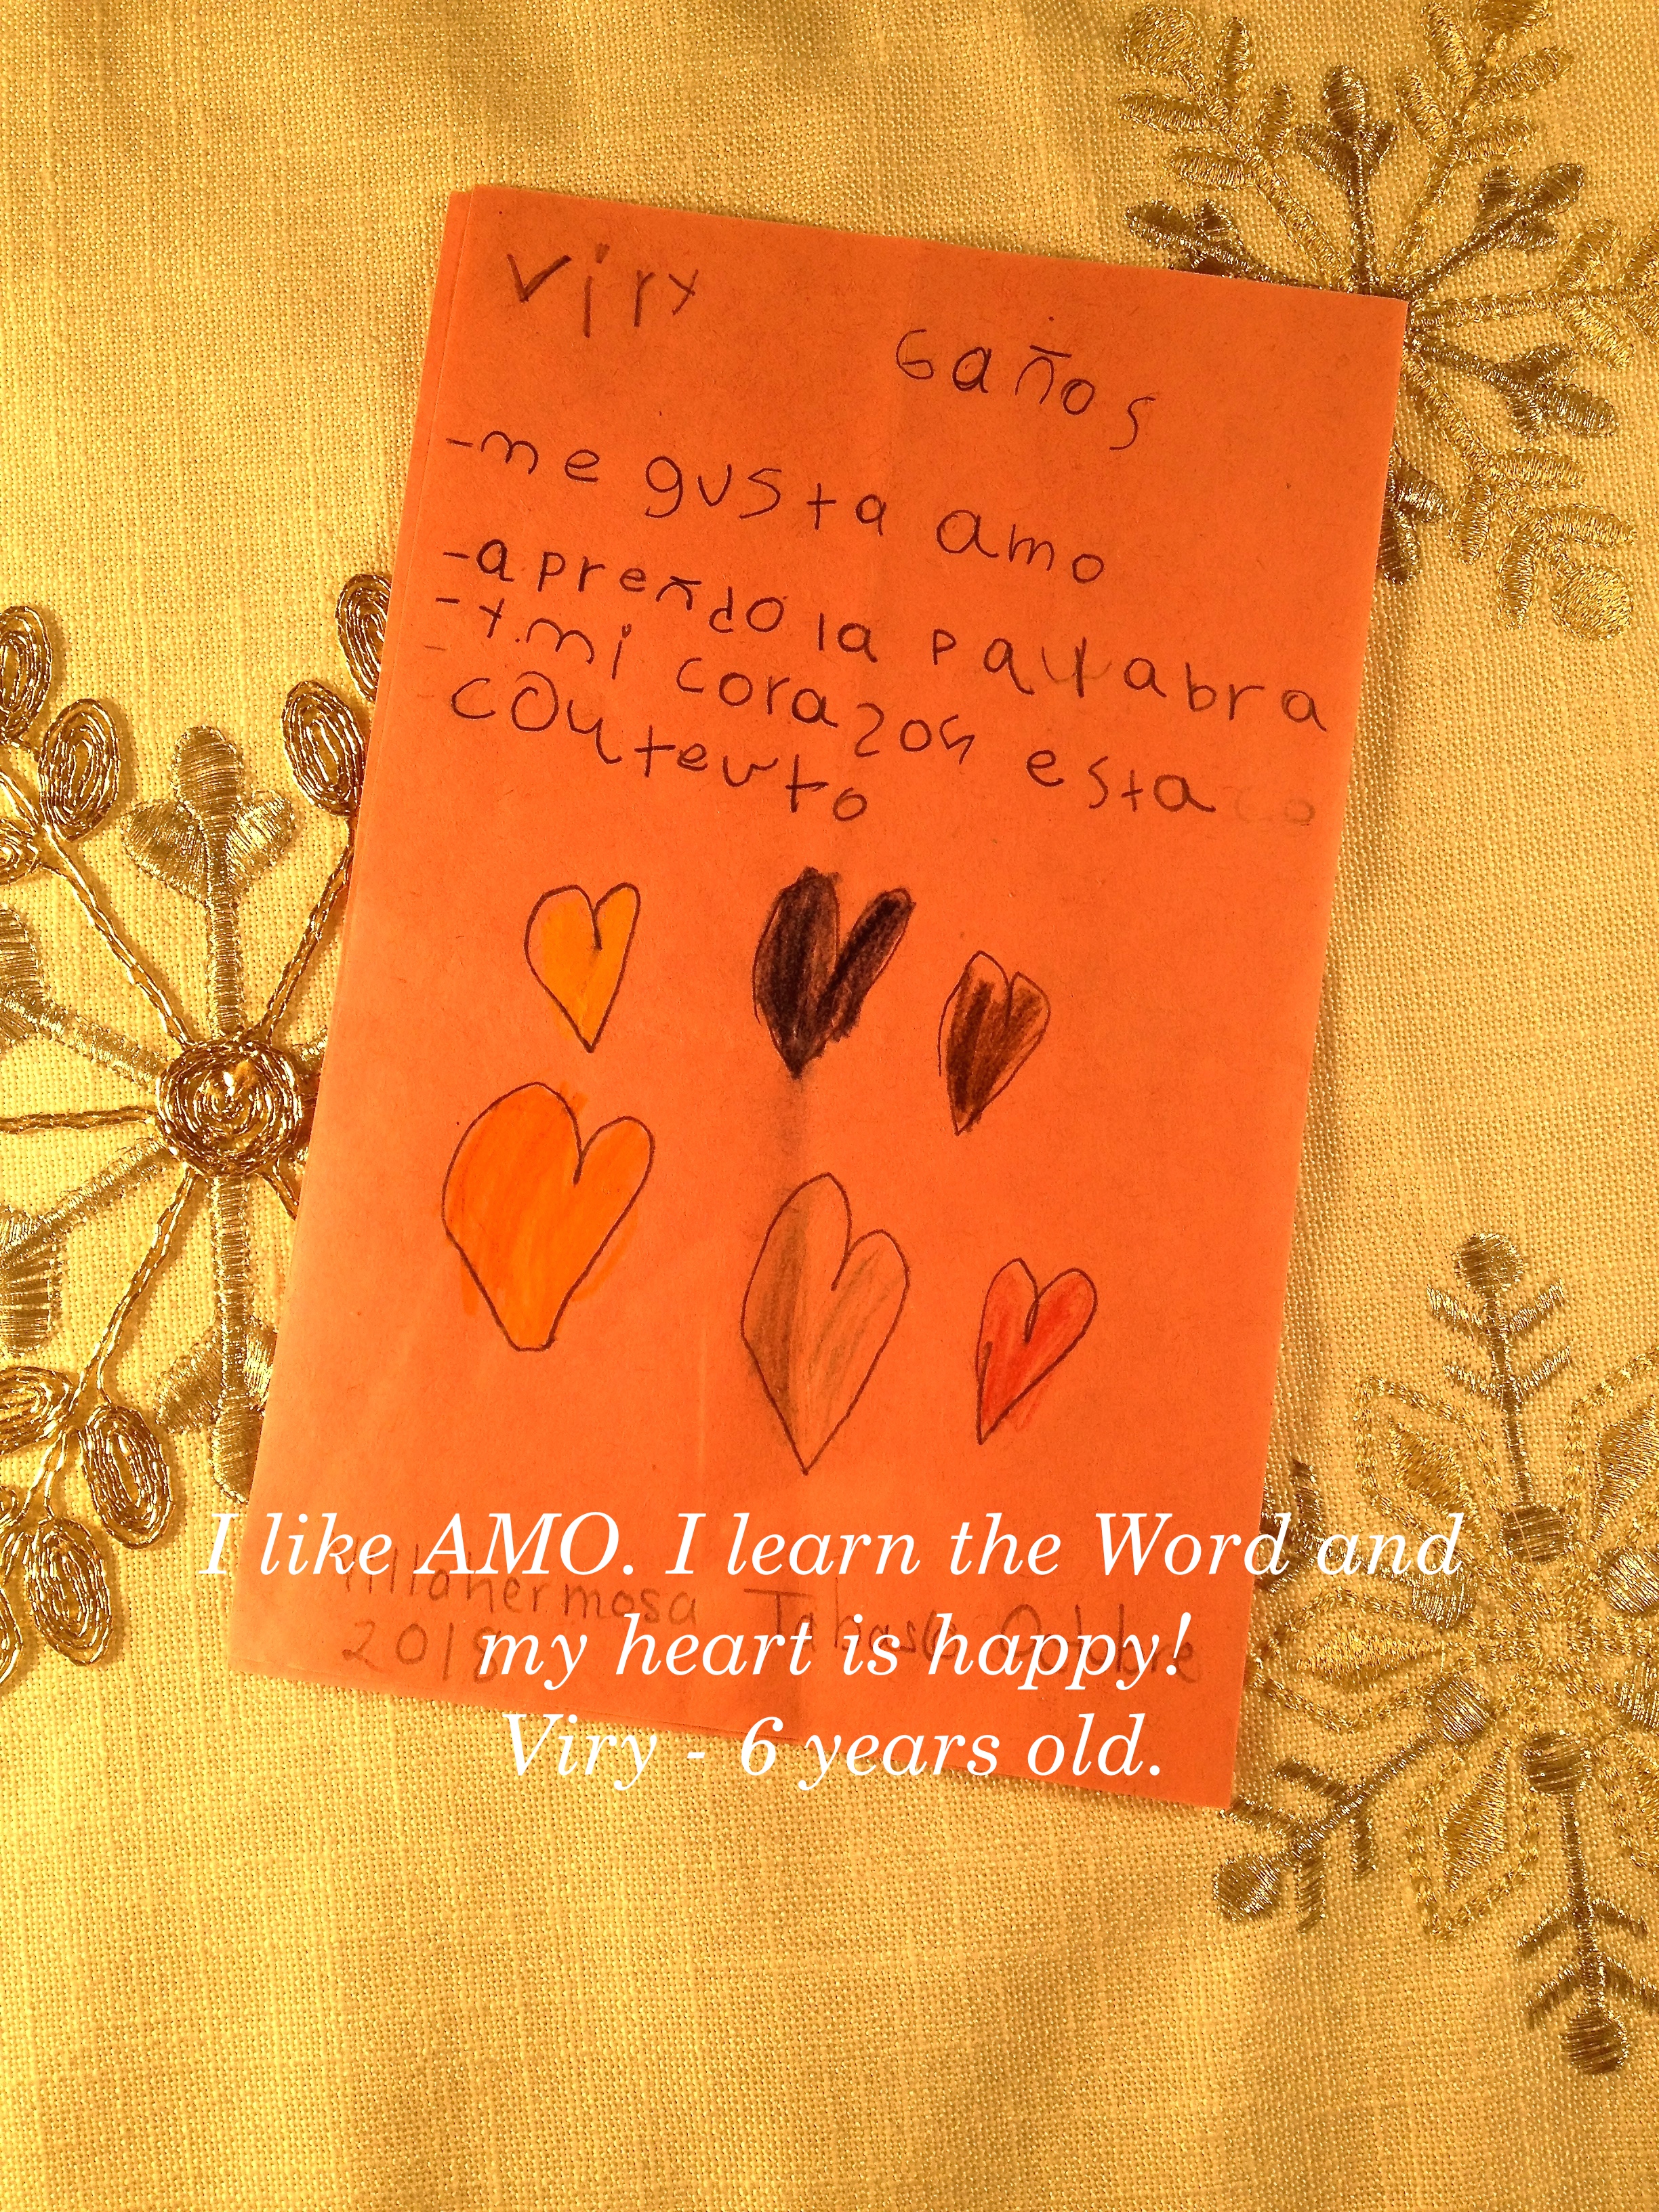 Viry
6 años
-me gusta amo
-apreñdo la palabra
-y mi corazon esta
contento
Villahermosa Tabasco Octubre
2018
I like AMO. I learn the Word and
my heart is happy!
Viry - 6 years old.